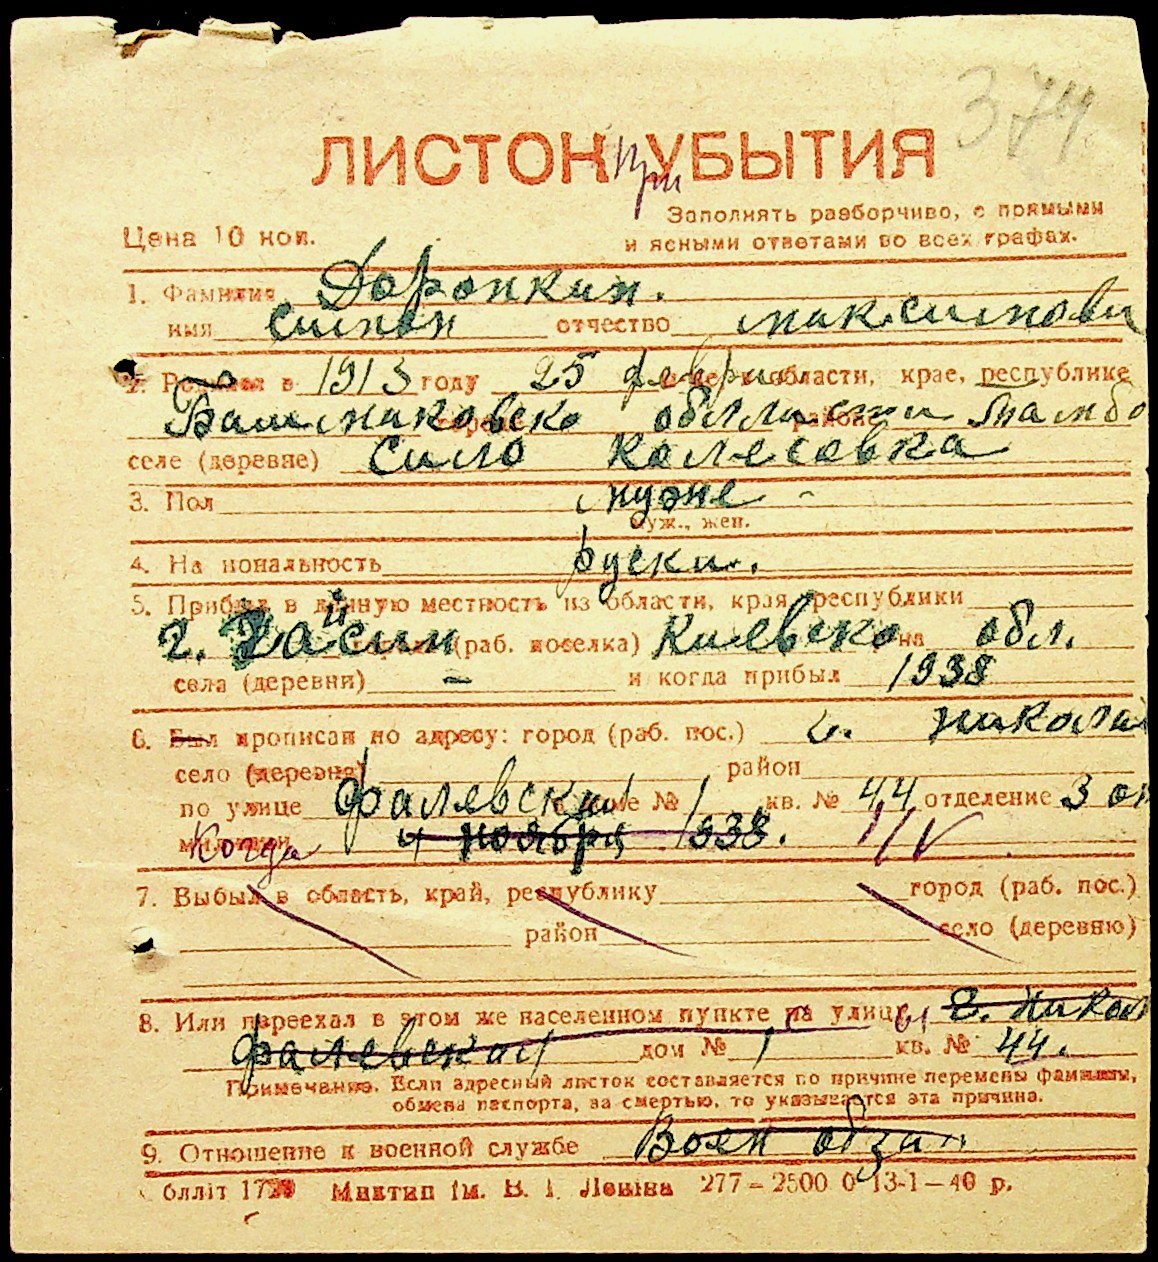 374
ЛИСТОК при УБЫТИЯ
Заполнять разборчиво, с прямыми
Цена 10 коп. и ясными ответами во всех графах.
1. Фамилия Доронкин.
имя Симон отчество максимови
2. Родился в 1913 году 25 февра области, крае, республике
Башмаковско области Тамбо
селе (деревне) Сило Колесовка
3. Пол муже -
муж., жен.
4. Национальность руски.
5. Прибыл в данную местность из области, края, республики
г. Гайсин (раб. поселка) Киевско на обл.
села (деревни) - и когда прибыл 1938
6. Был прописан по адресу: город (раб. пос.) г. Никола
село (деревня) район
по улице Фалевски доме № 1 кв. № 44 отделение 3 от
милиции Когда 4 ноябрц 1938. 1/V
7. Выбыл в область, край, республику город (раб. пос.)
район село (деревню)
8. Или переехал в этом же населенном пункте на улицу г. Никол
Фалевская дом № 1 кв. № 44.
Примечание. Если адресный листок составляется по причине перемены фамилии,
обмена паспорта, за смертью, то указывается эта причина.
9. Отношение к военной службе Воен обзан
блліт Миктип ім. В. І. Леніна 277–2500 0 13-1–40 р.